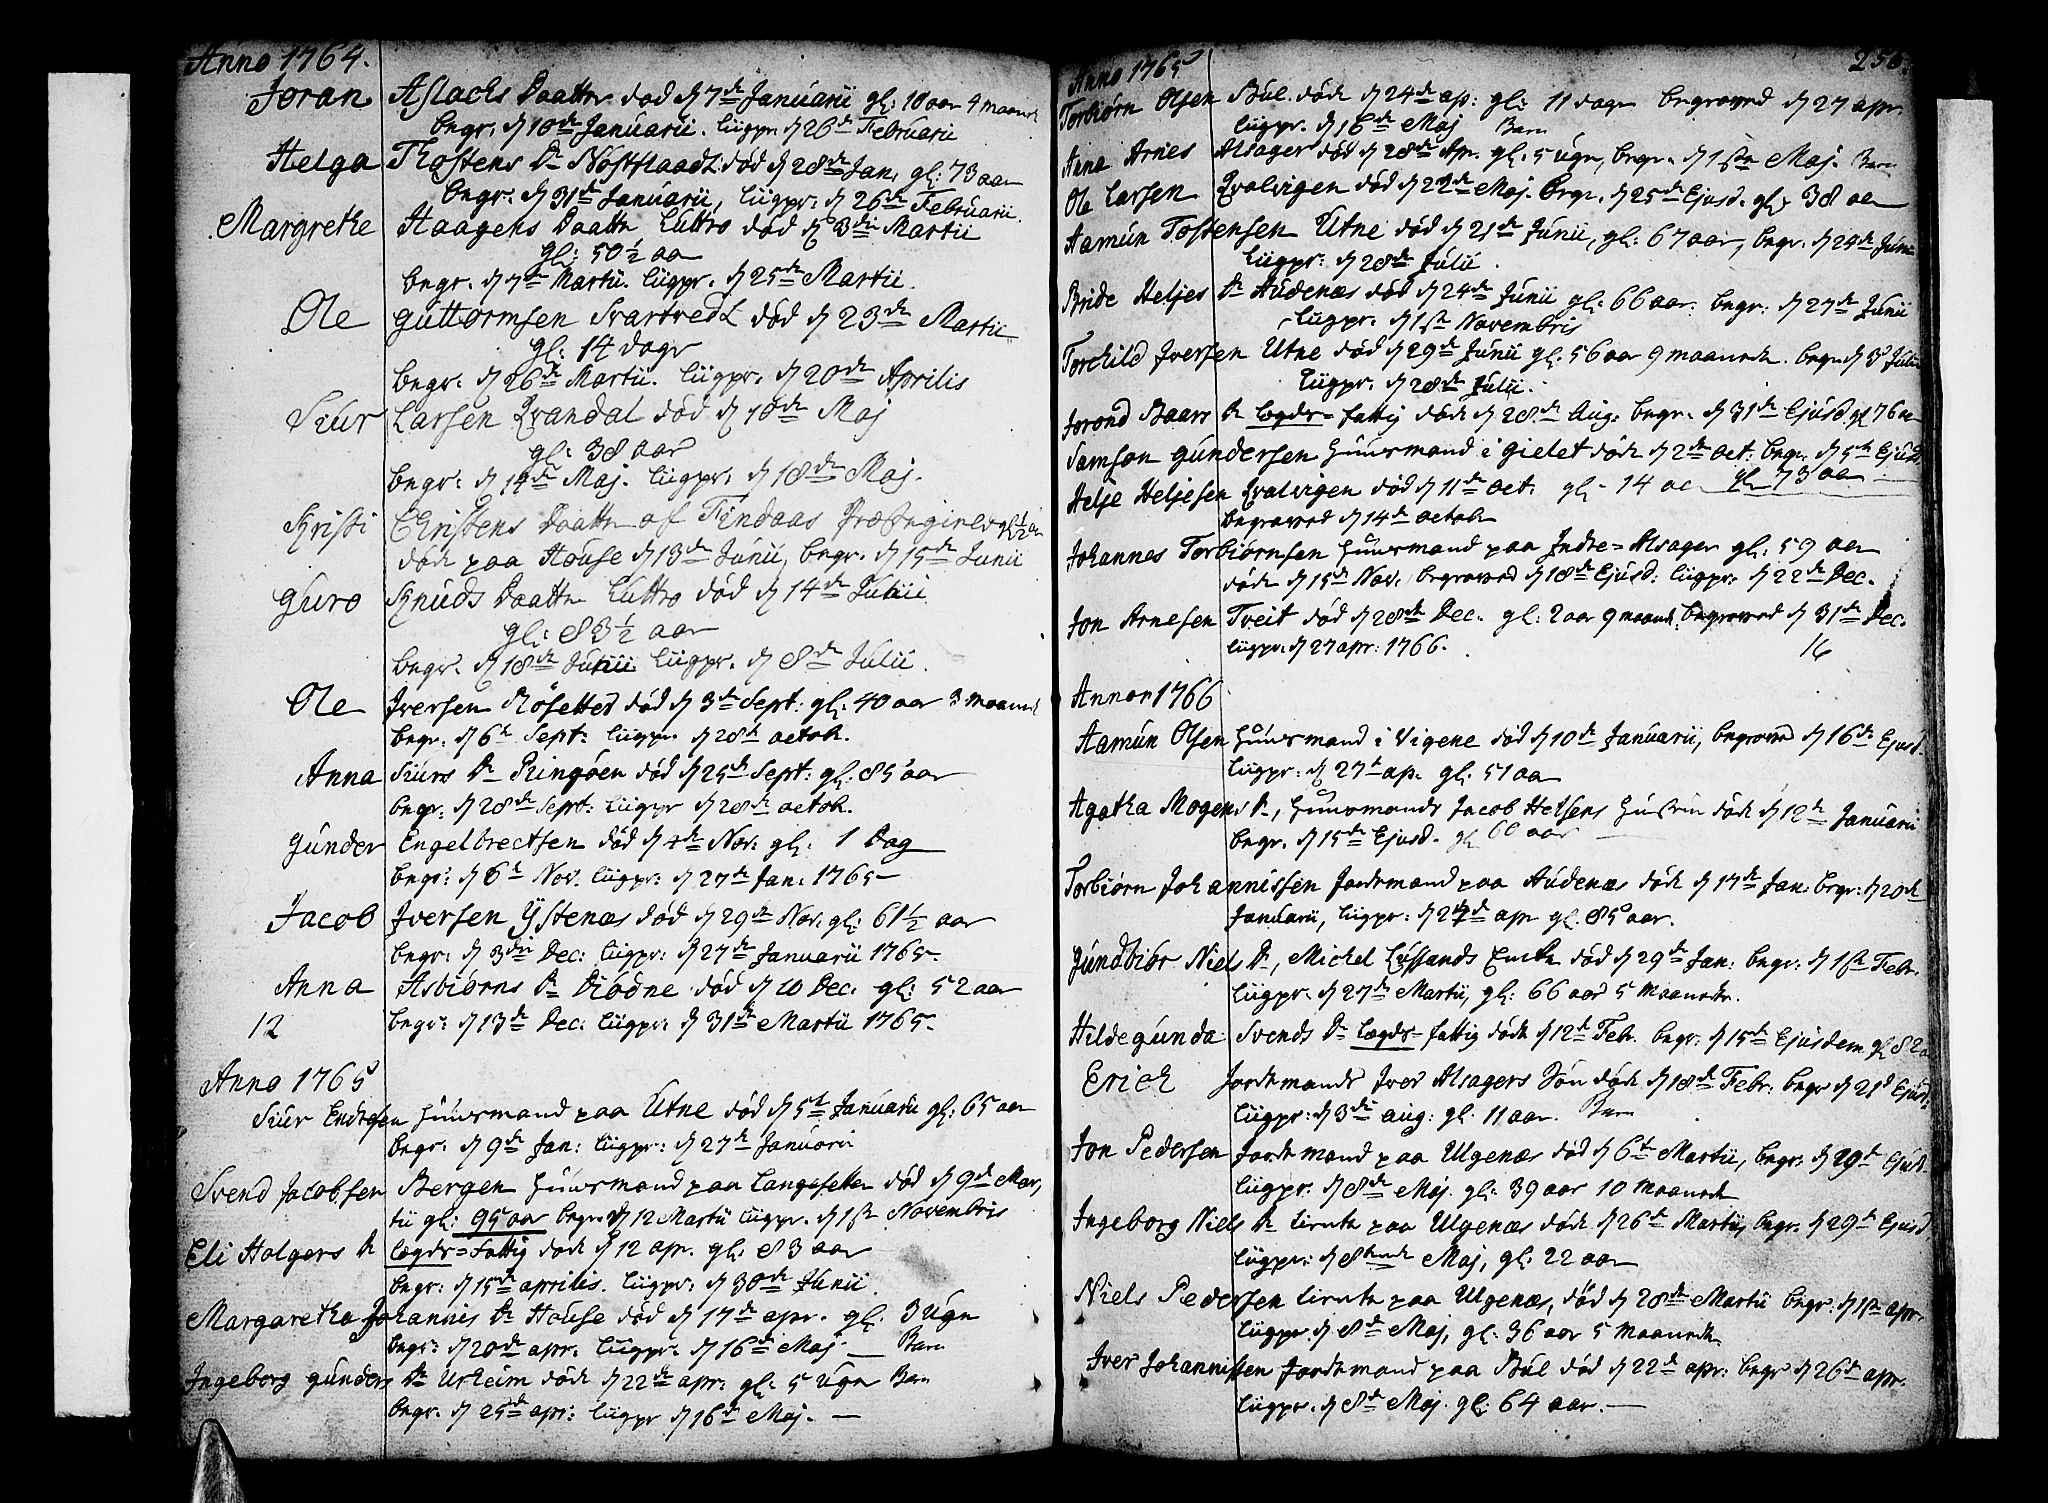 Anno 1764.
Joran Aslachs Daatter død d 7de Januarii gl: 10 aar 4 maaned
begr: d 10de Januarii. Liigpr: d 26de Februarii
Helga Thostens Dr Nostflaadt død d 28de Jan. gl: 73 aar
begr: d 31te Januarii, Liigpr: d 26de Februarii.
Margrethe Haagens Daatter Luttro død d 3die Martii
gl: 50 ½ aar
begr: d 7de Martii. Liigpr: d 25de Martii.
Ole Guttormsen Svartvedt død d 23de Martii
gl: 14 dage
begr: d 26de Martii. Liigpr: d 20de Aprilis
Siur Larsen Qvandal død d 10de Maj
gl: 38 aar
begr: d 14de Maj. Liigpr: d 18de Maj.
Kristi Christens Daatter af Findaas Præstegield gl ½ aar
døde paa House d 13de Junii, begr: d 15de Junii
Guro Knuds Daatter Luttro død d 14de Junii
gl: 83 ½ aar
begr: d 18de Junii Liigpr: d 8de Julii.
Ole Iversen Røsetter død d 3de Sept: gl: 40 aar 3 maaned
begr: d 6te Sept: Liigpr: d 28de octob.
Anna Siurs Dr Ringøen død d 25de Sept: gl: 85 aar
begr: d 28de Sept: Liigpr d 28de octob.
Gunder Engelbrectsen død d 4de Nov: gl: 1 Dag
begr: d 6te Nov. Liigpr: d 27de Jan: 1765
Jacob Iversen Ystenæs død d 29de Nov: gl: 61 ½ aar
begr: d 3die Dec: Liigpr: d 27de Januarii 1765.
Anna Asbiørns Dr Diødne død d 10 Dec: gl: 52 aar
12 begr: d 13de Dec: Liigpr: d 31te Martii 1765.
Anno 1765
Siur Endresen Huusmand paa Utne død d 5te Januarii gl: 65 aar
begr: d 9de Jan: Liigpr: d 27de Januarii
Svend Jacobsen Bergen Huusmand paa Langesetter død d 9de Mar,
tii gl: 95 aar begr: d 12 Martii Liigpr. d 1ste Novembris
Eli Holgers Dr Lægds=fattig døde d 12 apr. gl: 83 aar
begr: d 15de aprilis. Liigpr: d 30de Junii.
Margaretha Johannis Dr House død d 17de apr. gl. 3 Uger
begr: d 20de apr. Liigpr. d 16de Maj — Barn
Ingeborg Gunders Dr Urheim døde d 22de apr: gl: 5 Uger Barn
begr. d 25de apr: Liigpr d 16de Maj. —
Anno 1765 256.
Torbiørn Olsen Bul. døde d 24de ap: gl: 11 dage begraved d 27 apr.
Liigpr. d 16de Maj Barn
Anna Arnes Alsager død d 28de Apr. gl. 5 uger, begr. d 1ste Maj. Barn
Ole Larsen Qvalvigen død d 22de Maj. begr. d 25de Ejusd. gl: 38 aar
Aamun Tostensen Utne død d 21de Junii, gl: 67 aar, begr: d 24de Junii
Liigpr: d 28de Julii.
Bride Heljes Dr Audenæs død d 24de Junii gl: 66 aar: begr: d 27de Junii
Liigpr. d 1ste Novembris
Torchild Iversen Utne død d 29de Junii gl: 56 aar 9 maaneder. begr d 3de Julii
Liigpr. d 28de Julii.
Jorond Baars Dr Lægds=fattig døde d 28de Aug. begr: d 31te Ejusd. gl 76 aar
Samson Gundersen Huusmand i Gielet døde d 2de oct. begr: d 5te Ejusd.
gl 73 aar
Helje Heljesen Qvalvigen død d 11te oct. gl: 14 aar
begraved d 14de octob.
Johannes Torbiørnsen Huusmand paa Indre=Alsager gl: 59 aar
døde d 15de Nov: begraved d 18de Ejusd: Liigpr: d 22de Dec.
Jon Arnesen Tveit død d 28de Dec. gl: 2 aar 9 maaned: begraved d 31te Dec.
Liigpr. d 27 apr: 1766. 16
Anno 1766
Aamun Olsen Huusmand i Vigene død d 10de Januarii, begraved d 16de Ejusd.
Liigpr: d 27de ap. gl: 51 aar
Agatha Mogens Dr, Huusmands Jacob Helsens Hustru døde d 12te Januarii
begr. d 15de Ejusd. gl 60 aar
Torbiørn Johannissen Jordmand paa Audenæs døde d 17de Jan: begr: d 20de
Januarii, Liigpr: d 27de apr gl: 85 aar.
Gundbiør Niels Dr, Michel Lussands Enke død d 29de Jan: begr: d 1ste Febr.
Liigpr. d 27de Martii, gl: 66 aar 5 Maaneder.
Hildegunda Svends Dr Lægds=fattig døde d 12te Febr. begr: d 15de Ejusdem gl 82 a
Erich Jordmands Iver Alsagers Søn døde d 18de Febr: begr d 21de Ejusd.
Liigpr: d 3die aug: gl: 11 aar. Barn
Jon Pedersen Jordmand paa Ulgenæs død d 6te Martii, begr: d 29de Ejusd.
Liigpr. d 8de Maj. gl: 39 aar 10 Maaneder
Ingeborg Niels Dr tiente paa Ulgenæs døde d 26de Martii, begr: d 29de Ejusd
Liigpr: d 8tende Maj, gl: 22 aar
Niels Pedersen tiente paa Ulgenæs, død d 28de Martii begr: d 1ste apr.
Liigpr. d 8de Maj, gl: 36 aar 5 Maaneder
Iver Johannissen Jordmand paa Bul død d 22de apr: begr d 26de apr.
Liigpr. d 8de Maj. gl: 64 aar. —